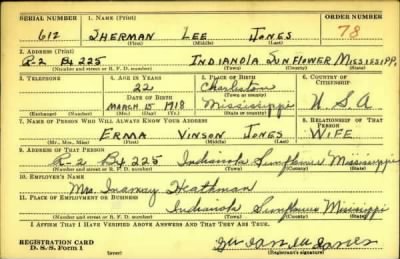 SERIAL NUMBER 1. NAME (Print) ORDER NUMBER
612 SHERMAN LEE JONES 78
(First) (Middle) (Last)
2. ADDRESS (Print)
R-2 Bx 225 INDIANOLA SUNFLOWER MISSISSIPPI
(Number and street or R. F. D. number) (Town) (County) (State)
3. TELEPHONE 4. AGE IN YEARS 5. PLACE OF BIRTH 6. COUNTRY OF CITIZENSHIP
22 Charleston
DATE OF BIRTH (Town or county)
MARCH 15 1918 Mississippi U.S.A
(Exchange) (Number) (Mo.) (Day) (Yr.) (State or country)
7. NAME OF PERSON WHO WILL ALWAYS KNOW YOUR ADDRESS 8. RELATIONSHIP OF THAT PERSON
ERMA VINSON JONES WIFE
(Mr., Mrs., Miss) (First) (Middle) (Last)
9. ADDRESS OF THAT PERSON
R-2 Bx 225 Indianola Sunflower Mississippi
(Number and street or R. F. D. number) (Town) (County) (State)
10. EMPLOYER'S NAME
Mrs. Heathman
11. PLACE OF EMPLOYMENT OR BUSINESS
Indianola Sunflower Mississippi
(Number and street or R. F. D. number) (Town) (County) (State)
I AFFIRM THAT I HAVE VERIFIED ABOVE ANSWERS AND THAT THEY ARE TRUE.
REGISTRATION CARD
D. S. S. Form 1
(Registrant's signature)